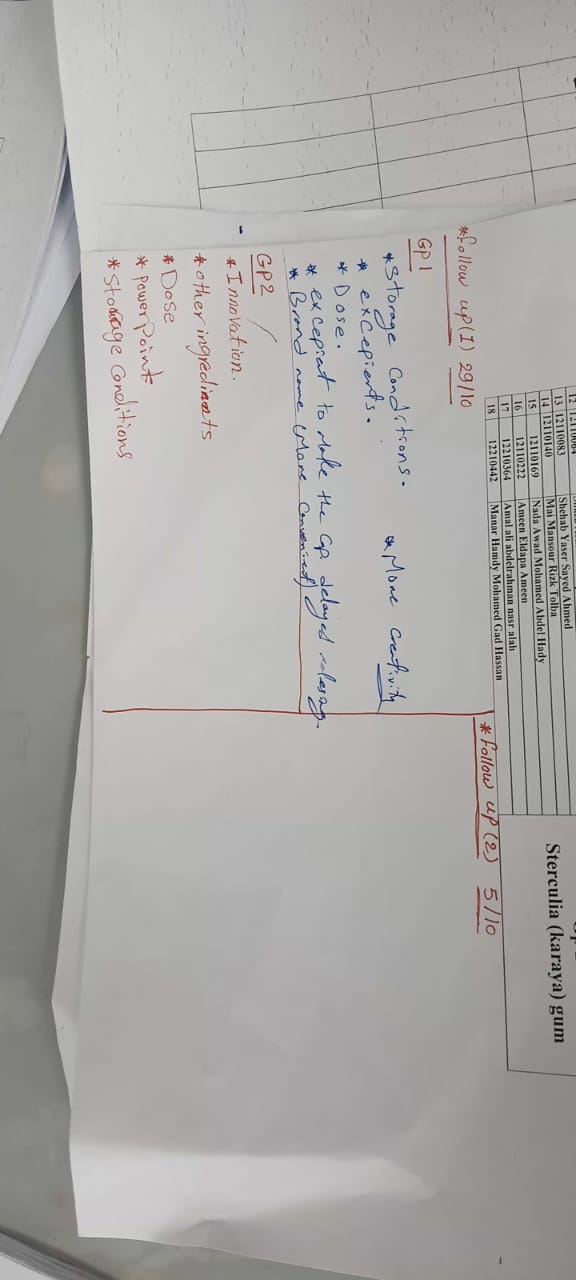 Shehab Yaser Sayed Ahmed
13 12110083 Mai Mansour Rizk Tolba
14 12110140 Nada Awad Mohamed Abdel Hady
15 12110169 Ameen Eldapa Ameen
16 12110222 Amal ali abdelrahman nasr alah
17 12210364 Manar Hamdy Mohamed Gad Hassan
18 12210442
Sterculia (karaya) gum
*Follow up (1) 29/10
GP1
*Storage Conditions.
*More Creativity
* excepients.
* Dose.
* excepiant to make the Cap delayed
* Brand name (More Convenient)
GP2
*Innovation.
*other ingredients
*Dose
*powerPoint
*Storage Conditions
*Follow up (2) 5/10